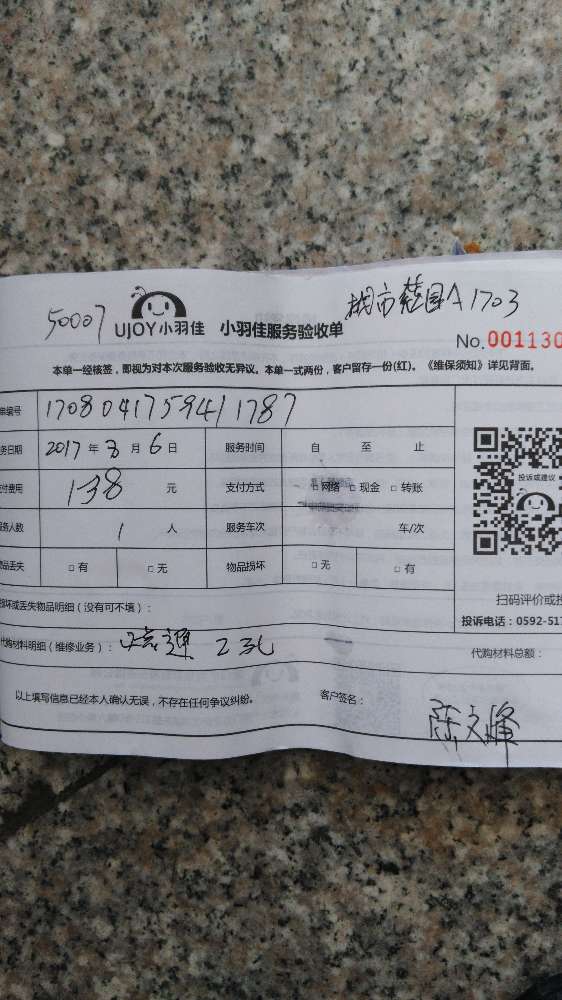 50007 UJOY小羽佳 小羽佳服务验收单 城市 园A1703
No.001130
本单一经核签，即视为对本次服务验收无异议。本单一式两份，客户留存一份(红)。《维保须知》详见背面。
单编号 1708041759411787
务日期 2017年8月6日 服务时间 自 至 止
付费用 138 元 支付方式 □网络 □现金 □转账
投诉或建议
服务人数 1 人 服务车次 车/次
物品丢失 □有 □无 物品损坏 □无 □有
扫码评价或投
损坏或丢失物品明细（没有可不填）：
投诉电话：0592-517
代购材料明细（维修业务）： 通 2孔 代购材料总额：
以上填写信息已经本人确认无误，不存在任何争议纠纷。 客户签名： 陈文峰